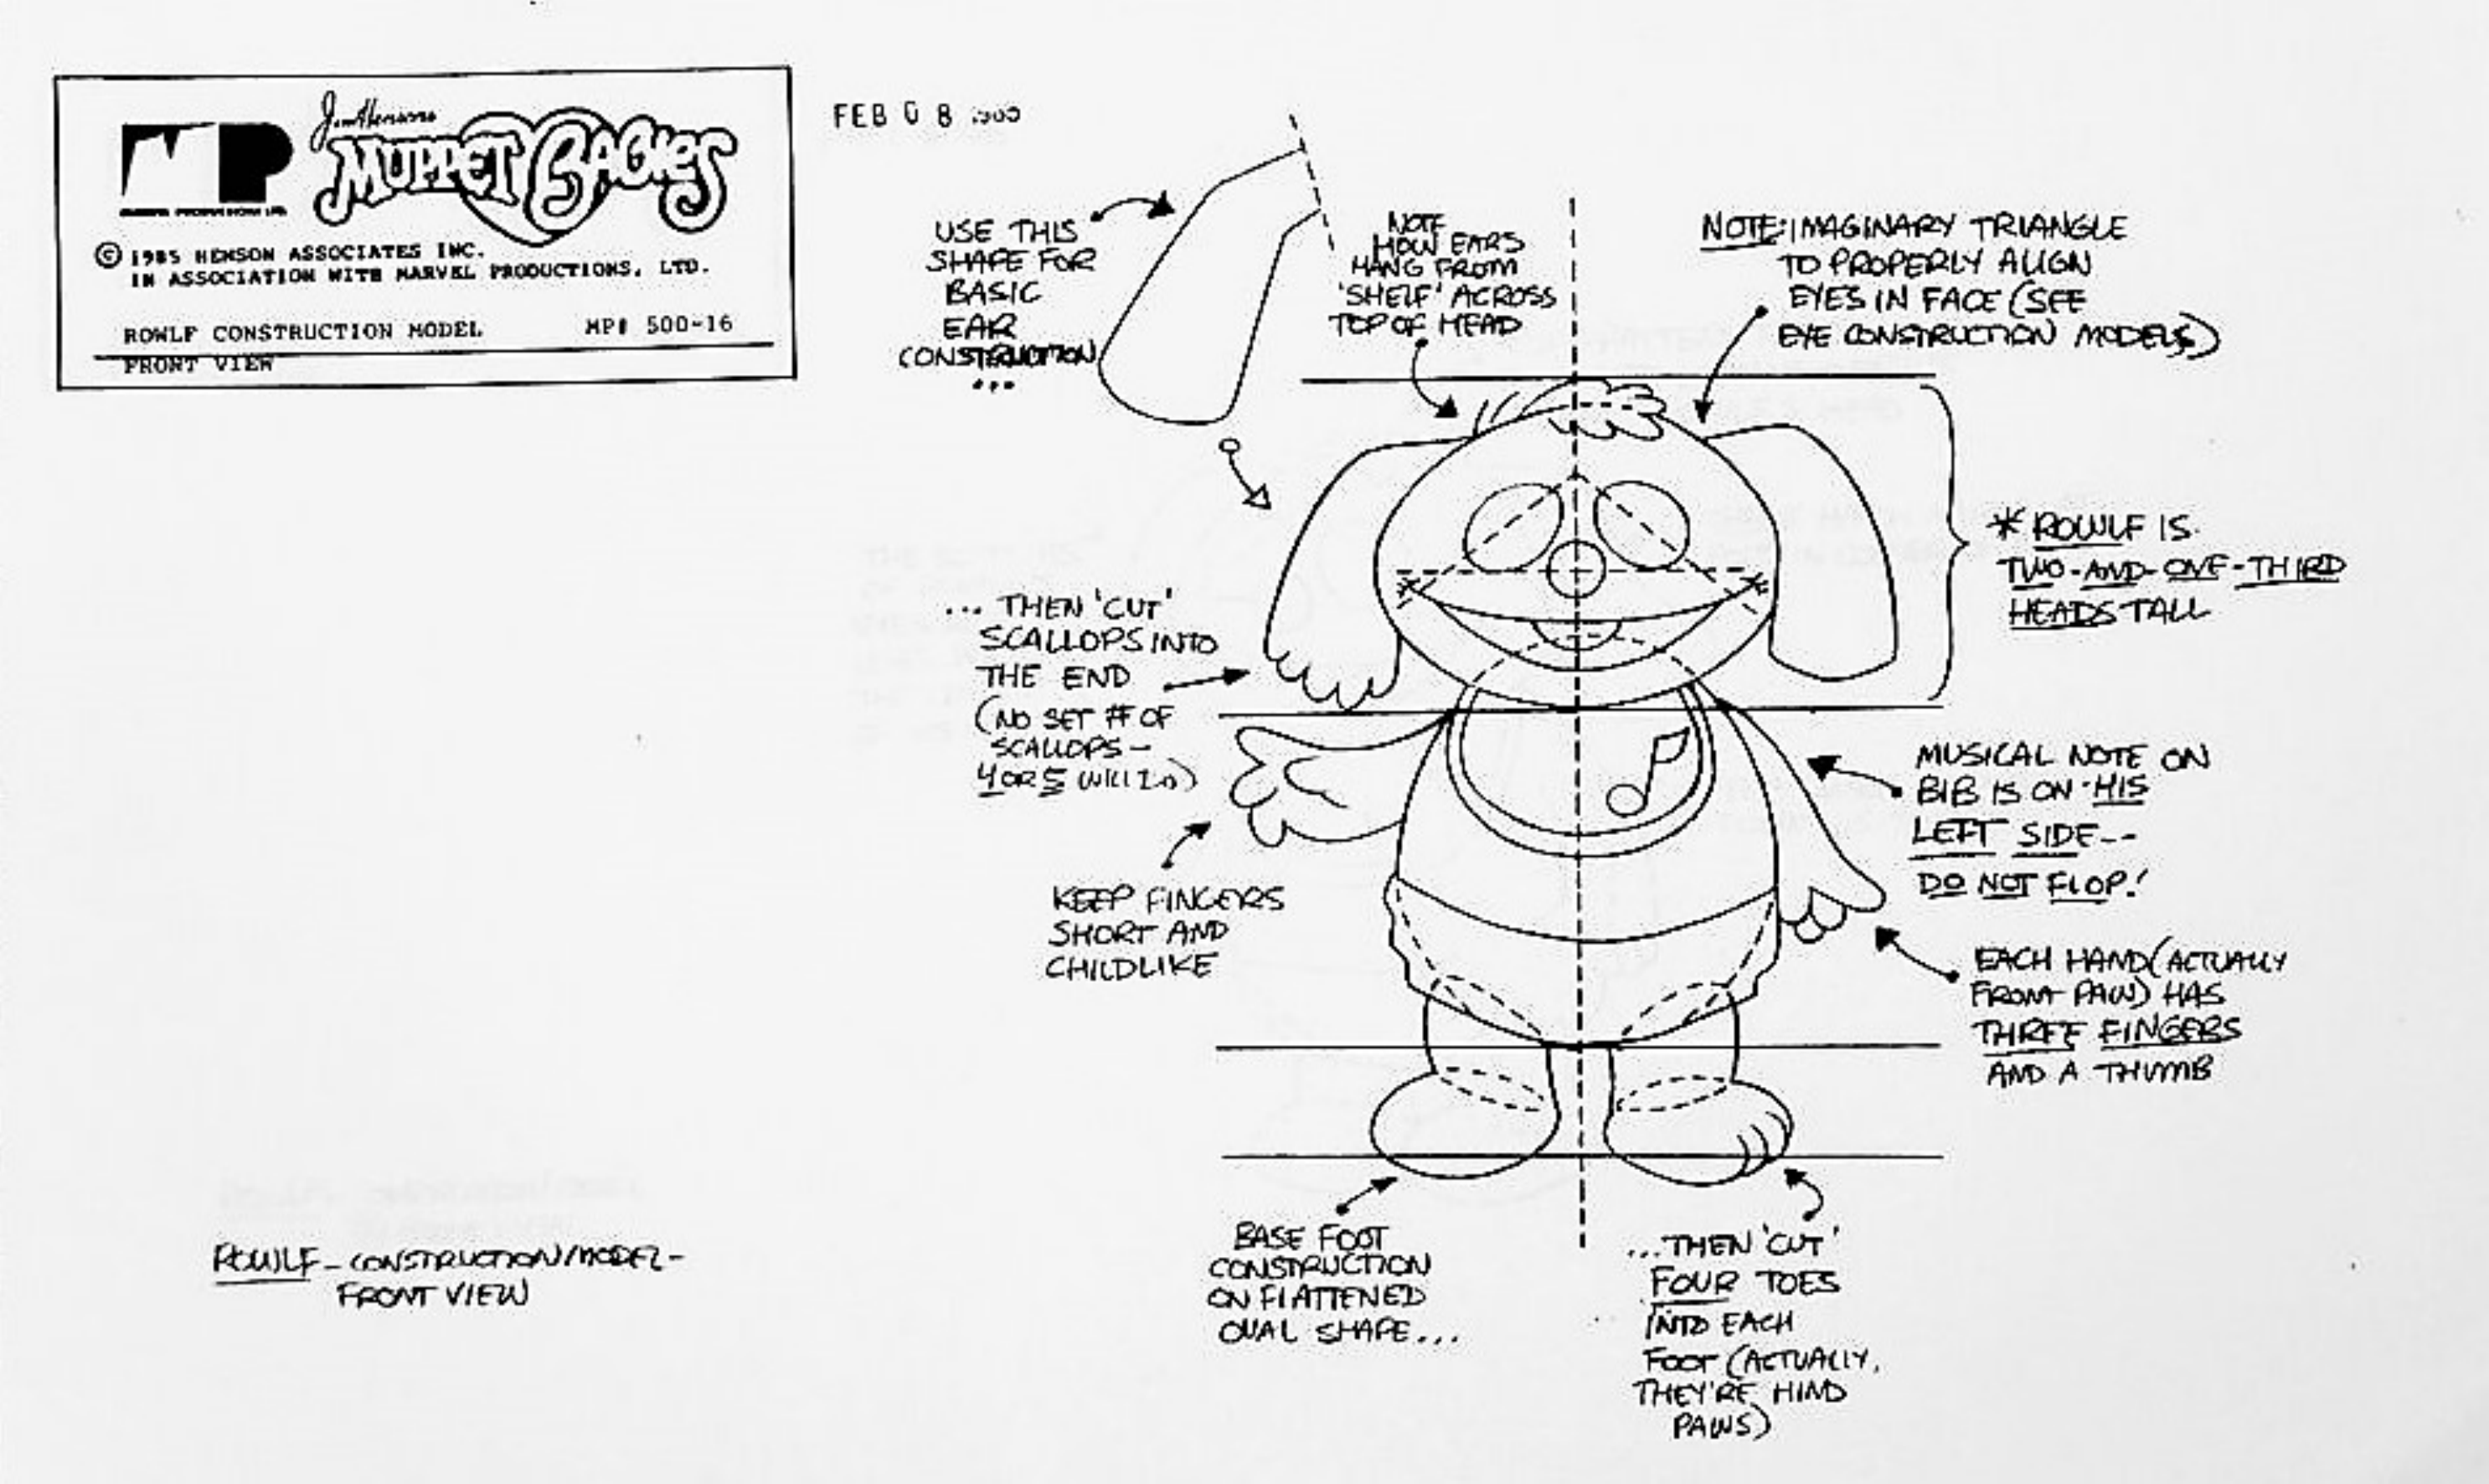 Jim Henson's
MUPPET BABIES
© 1985 HENSON ASSOCIATES INC.
IN ASSOCIATION WITH MARVEL PRODUCTIONS, LTD.
ROWLF CONSTRUCTION MODEL MP# 500-16
FRONT VIEW
FEB 08
USE THIS
SHAPE FOR
BASIC
EAR
CONSTRUCTION
...
NOTE
HOW EARS
HANG FROM
'SHELF' ACROSS
TOP OF HEAD
NOTE: IMAGINARY TRIANGLE
TO PROPERLY ALIGN
EYES IN FACE (SEE
EYE CONSTRUCTION MODELS)
* ROWLF IS
TWO-AND-ONE-THIRD
HEADS TALL
... THEN 'CUT'
SCALLOPS INTO
THE END
(NO SET # OF
SCALLOPS -
4 OR 5 WILL DO)
MUSICAL NOTE ON
BIB IS ON HIS
LEFT SIDE--
DO NOT FLOP!
KEEP FINGERS
SHORT AND
CHILDLIKE
EACH HAND (ACTUALLY
FRONT PAW) HAS
THREE FINGERS
AND A THUMB
BASE FOOT
CONSTRUCTION
ON FLATTENED
OVAL SHAPE...
...THEN 'CUT'
FOUR TOES
INTO EACH
FOOT (ACTUALLY,
THEY'RE HIND
PAWS)
ROWLF - CONSTRUCTION/MODEL -
FRONT VIEW